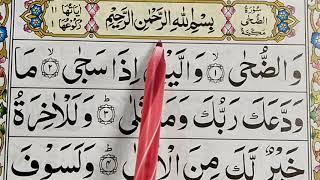 سُوْرَةُ الضُّحٰى مَكِّيَّةٌ
بِسْمِ اللهِ الرَّحْمٰنِ الرَّحِيْمِ
اٰيَاتُهَا ١١ رُكُوْعُهَا ١
وَالضُّحٰى ۝١ وَالَّيْلِ اِذَا سَجٰى ۝٢ مَا
وَدَّعَكَ رَبُّكَ وَمَا قَلٰى ۝٣ وَلَلْاٰخِرَةُ
خَيْرٌ لَّكَ مِنَ ۝٤ وَلَسَوْفَ